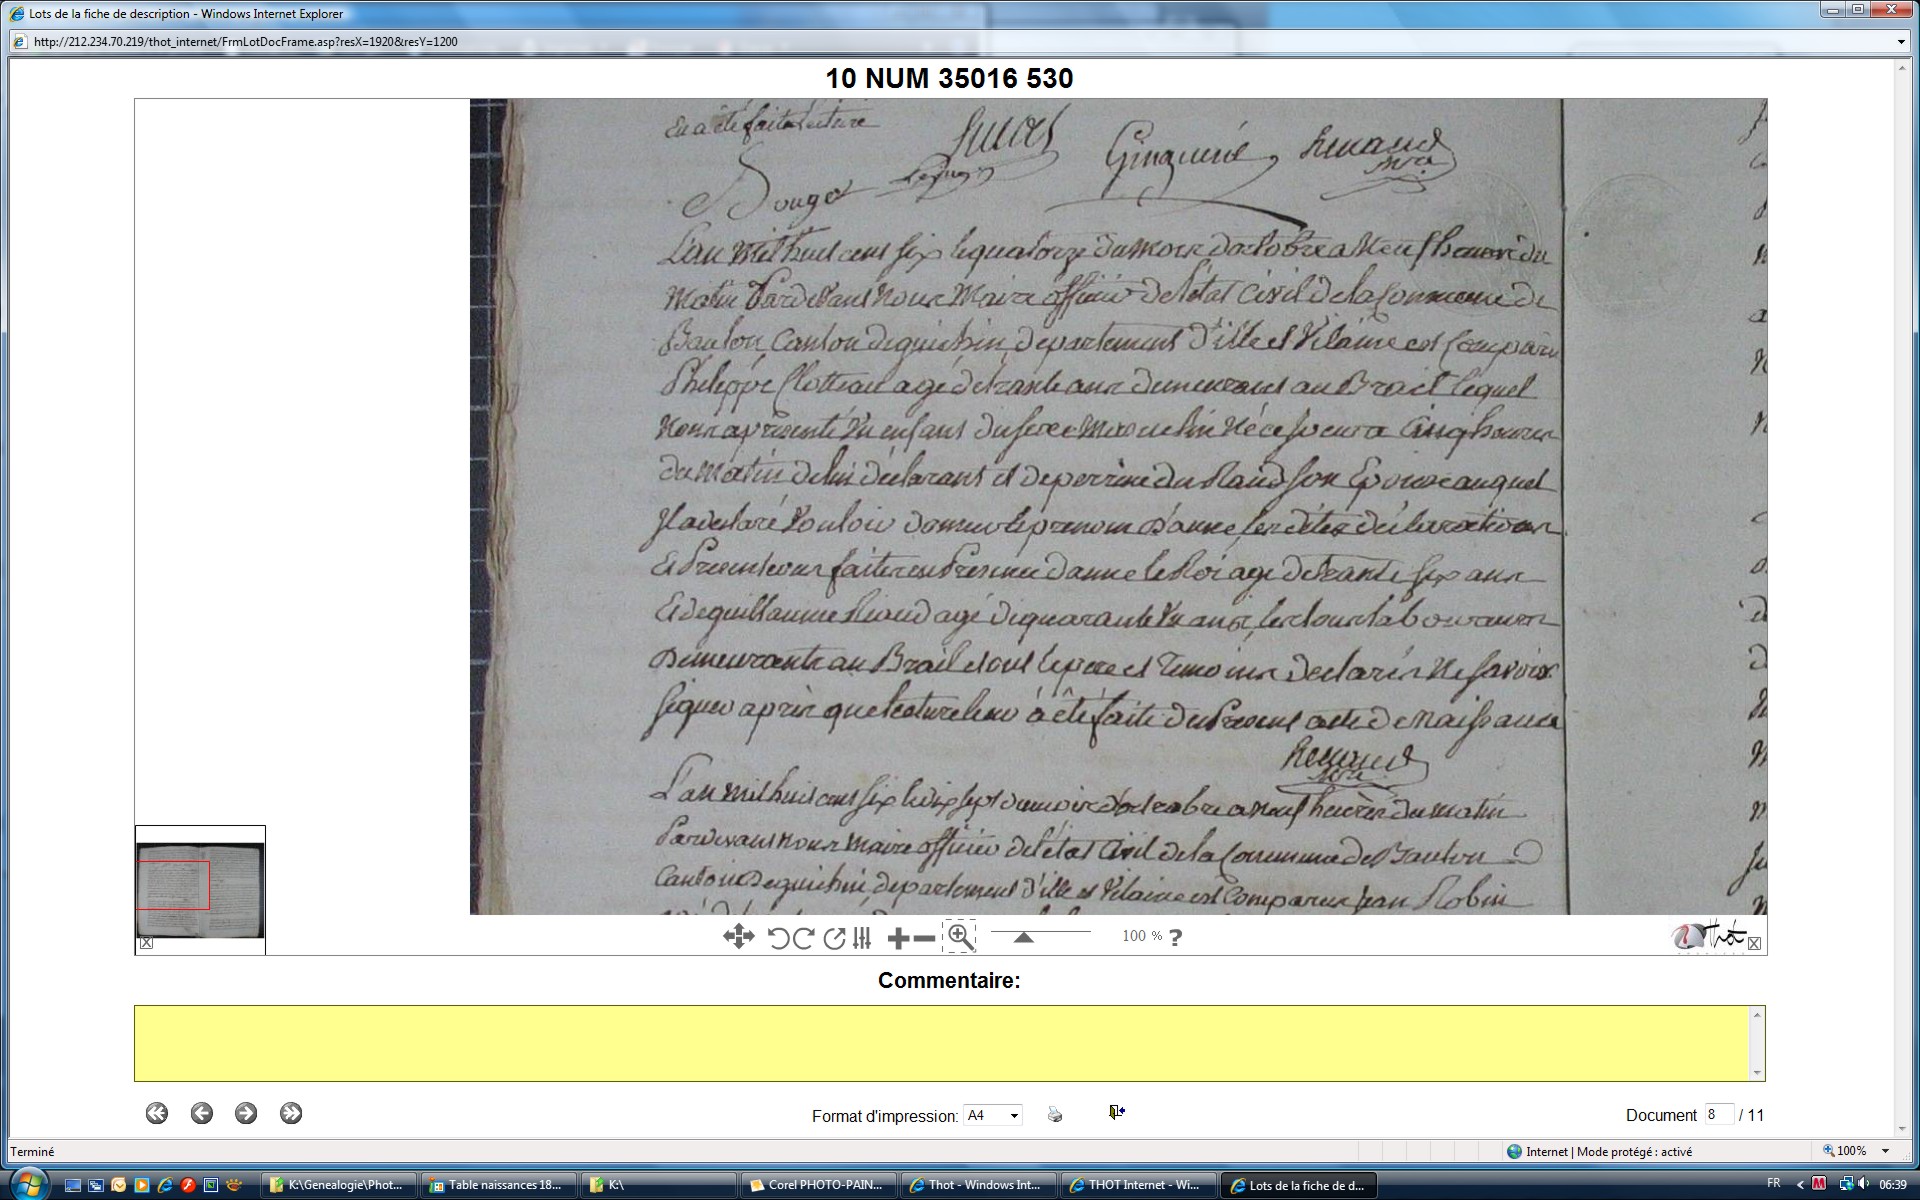 Lots de la fiche de description - Windows Internet Explorer
http://212.234.70.219/thot_internet/FrmLotDocFrame.asp?resX=1920&resY=1200
10 NUM 35016 530
En a été faite lecture
Ginguené Renaud
Bouget
L'an mil huit cent six le quatorze du mois d'octobre a Neuf heures du
Matin Pardevant Nous Maire officier de l'état Civil de la Commune de
Baulon Canton de guichin, departement d'ille et Vilaine est Comparu
Philippe Clotteau agé de trante ans demeurant au Brail lequel
Nous a présenté Un enfant du sexe Masculin Né ce jour a Cinq heures
du Matin de lui déclarant et de perrine du Raud son Epouse auquel
Il a déclaré Vouloir donner le prenom d'anne, les dites déclarations
Et Presentations faites en Presence d'anne le Roi agé de trante six ans
Et de guillaume Riaud agé de quarante Un ans, les tous laboureurs
Demeurants au Brail et ont le père et Temoins declarés Ne savoir
signer après que lecture leur a été faite du Present acte de Naissance
Renaud
L'an mil huit cent six le dix sept du mois d'octobre a neuf heures du matin
Pardevant nous Maire officier de l'état Civil de la Commune de Baulon
Canton de guichin, departement d'ille et Vilaine est Comparu Jean Robin
100 % ?
Thot
Commentaire:
Format d'impression: A4
Document 8 / 11
Terminé
Internet | Mode protégé : activé
100%
K:\Genealogie\Phot...
Table naissances 18...
K:\
Corel PHOTO-PAIN...
Thot - Windows Int...
THOT Internet - Wi...
Lots de la fiche de d...
FR
06:39